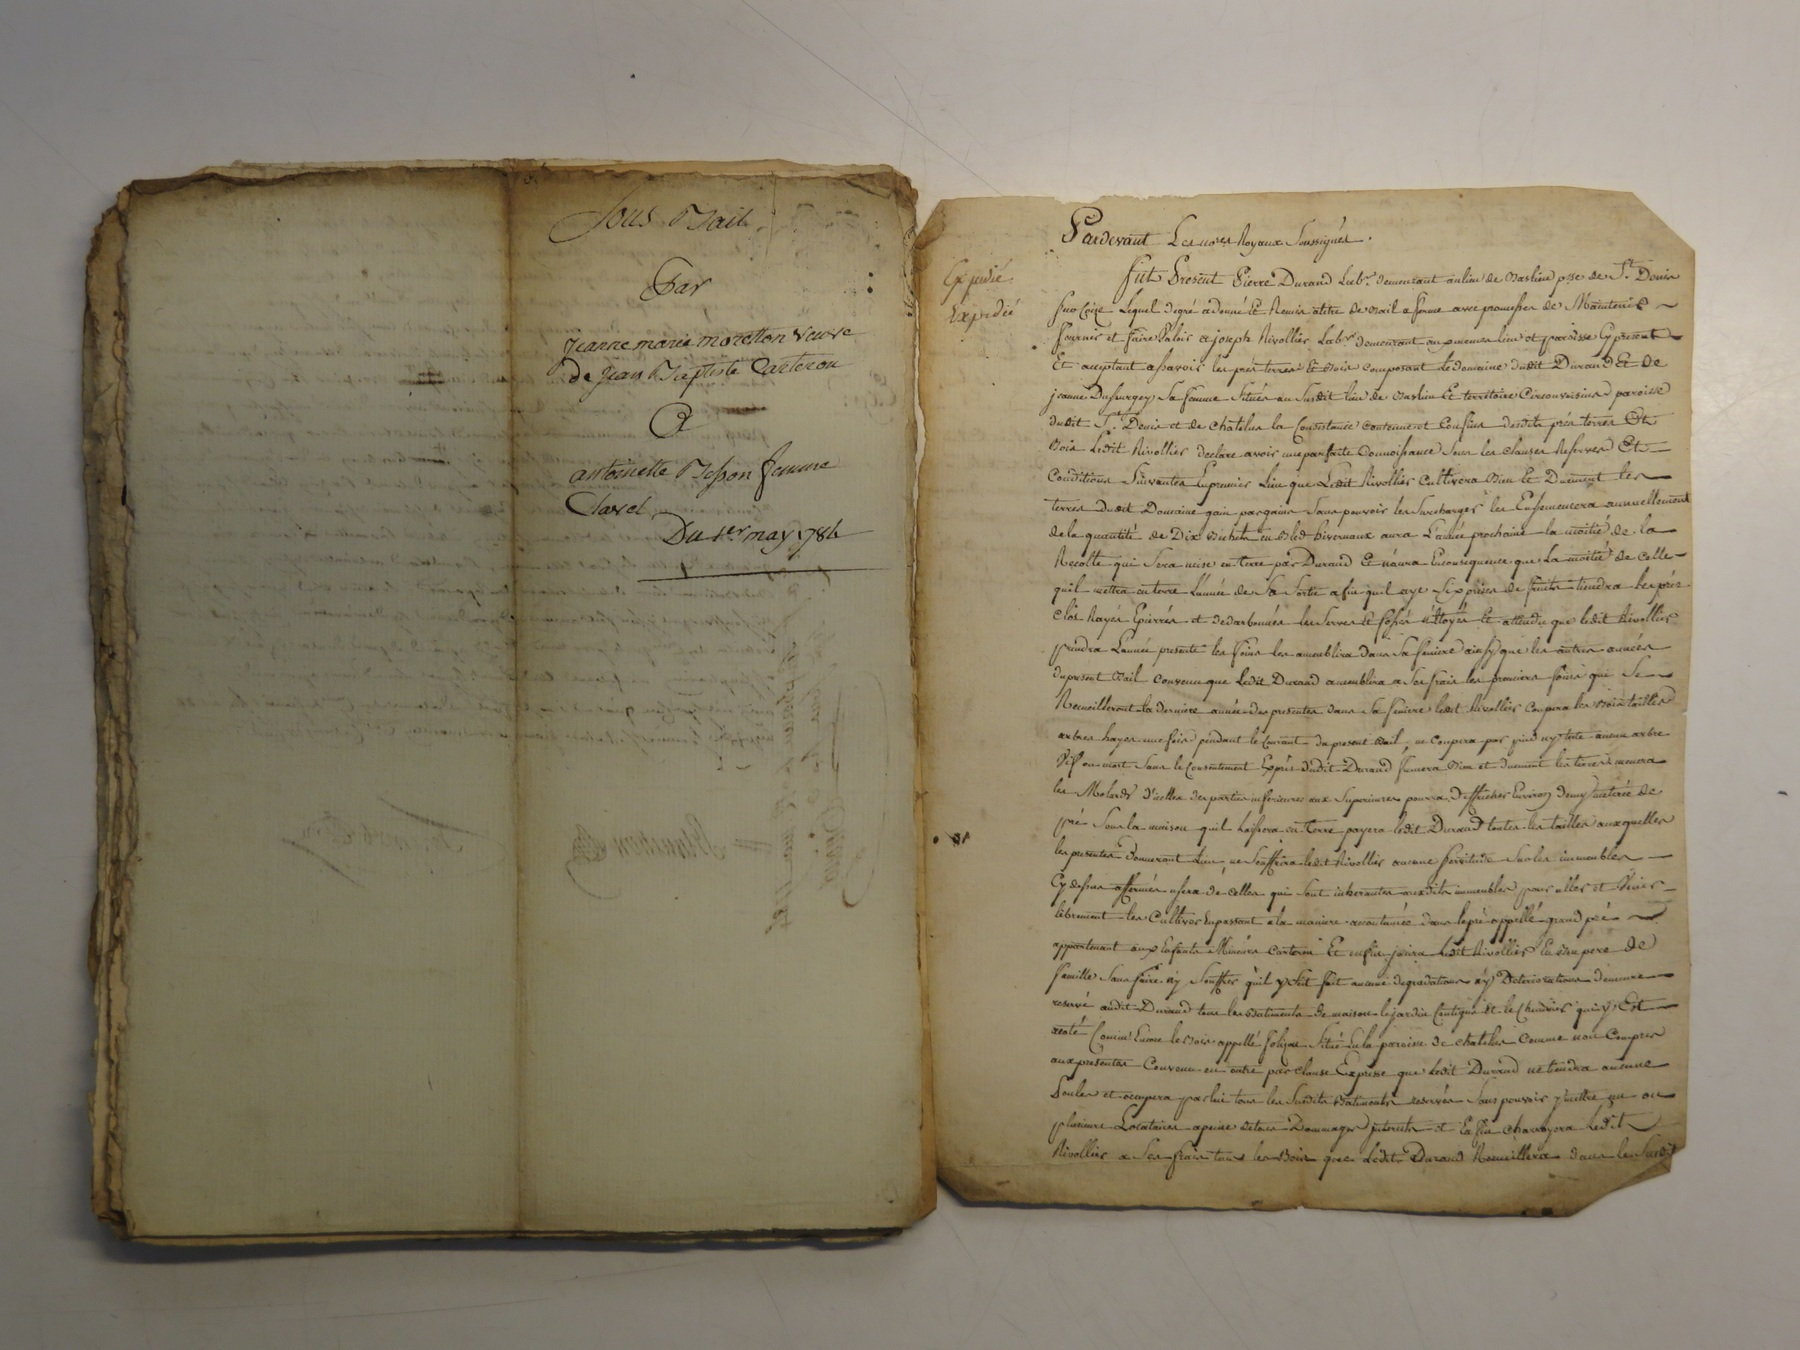 Sous Bail
Par
jeanne marie moretton veuve
de jean Baptiste Carteron
A
antoinette Besson femme
Clavel
Du 1er may 1784
Pardevant Les nores Royaux Soussignés.
Expedié
Expedié
fut Present Pierre Durand Labr. demeurant au lieu de Baslieu psse de St. Denis
Sur Coize Lequel degré a donné Et Remis atitre de Bail a ferme avec promesses de Maintenir
fournir et faire Valoir a joseph Rivollier Labr. demeurant au meme Lieu et paroisse Cy present
Et acceptant asavoir les prés terres Et Bois composant Le domaine dudit Durand Et de
jeanne Sa femme Situés au Susdit lieu de Baslieu Et territoire Circonvoisins paroisse
dudit St. Denis et de Chatelus la Consistance contenue et Confins desdits prés terres Et
Bois Ledit Rivollier declare avoir une parfaite Connoissance Sous les Clauses Reserves Et
Conditions Suivantes En premier Lieu que Ledit Rivollier Cultivera Bien Et Duement les
terres Dudit Domaine gain par gain Sans pouvoir les Surcharger les Ensemencera annuellement
de la quantité de Dix Bichets en Bled hivernaux aura L'année prochaine la moitié de la
Recolte qui Sera mise en terre par Durand Et n'aura En consequence que La moitié de celle
quil mettra en terre L'année de Sa Sortie afin quil aye Six prises de fruits tiendra les prés
Clos Rayés Epierrés et les Serves Et fossés Nettoyés Et attendu que ledit Rivollier
prendra L'année presente les foins les ameublira dans Sa feniere ainsy que les autres années
du present Bail Convenu que Ledit Durand ameublira a Ses frais les premiers foins qui Se
Recueilleront la derniere année des presentes dans Sa feniere ledit Rivollier Coupera les Bois taillis
arbres hayes une fois pendant le Courant du present Bail, ne Coupera par pied ny tete aucun arbre
Vif ou mort Sans le Consentement Exprès dudit Durand fumera Bien et duement les terres menera
les d'icelles des parties inferieures aux Superieures pourra Deffricher Environ demy de
pré Sous la maison quil laissera en Terre payera ledit Durand toutes les tailles auxquelles
les presentes Donneront Lieu ne Souffrira ledit Rivollier aucune Servitude Sur les immeubles
Cy dessus affermés usera de celles qui Sont inherantes auxdits immeubles pour aller et Venir
librement les Cultiver En passant a la maniere accoutumée dans le pré appellé grand pré
appartenant aux Enfants Mineurs Carteron Et enfin jouira ledit Rivollier En Bon pere de
famille Sans faire ny Souffrir quil y Soit fait aucunes degradations ny Deteriorations demeure
reservé audit Durand tous les Batiments de maison le jardin Contigu et le Chenevier qui y Est
Comme Encore le Bois appellé Situé En la paroisse de Chatelus Comme non Compris
aux presentes Convenu en outre par Clause Expresse que Ledit Durand ne tiendra aucune
Poules et occupera par lui tous les Susdits Batiments reservés Sans pouvoir y mettre un ou
plusieurs Locataires a peine de tous Dommages interets et Enfin Charroyera Ledit
Rivollier a Ses frais tous les Bois que Ledit Durand Recueillera dans les Susdit